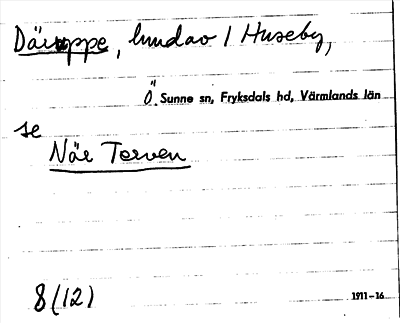 Däruppe, lundav / Huseby,
Ö. Sunne sn, Fryksdals hd, Värmlands län
se
När Torven
8(12)
1911-16